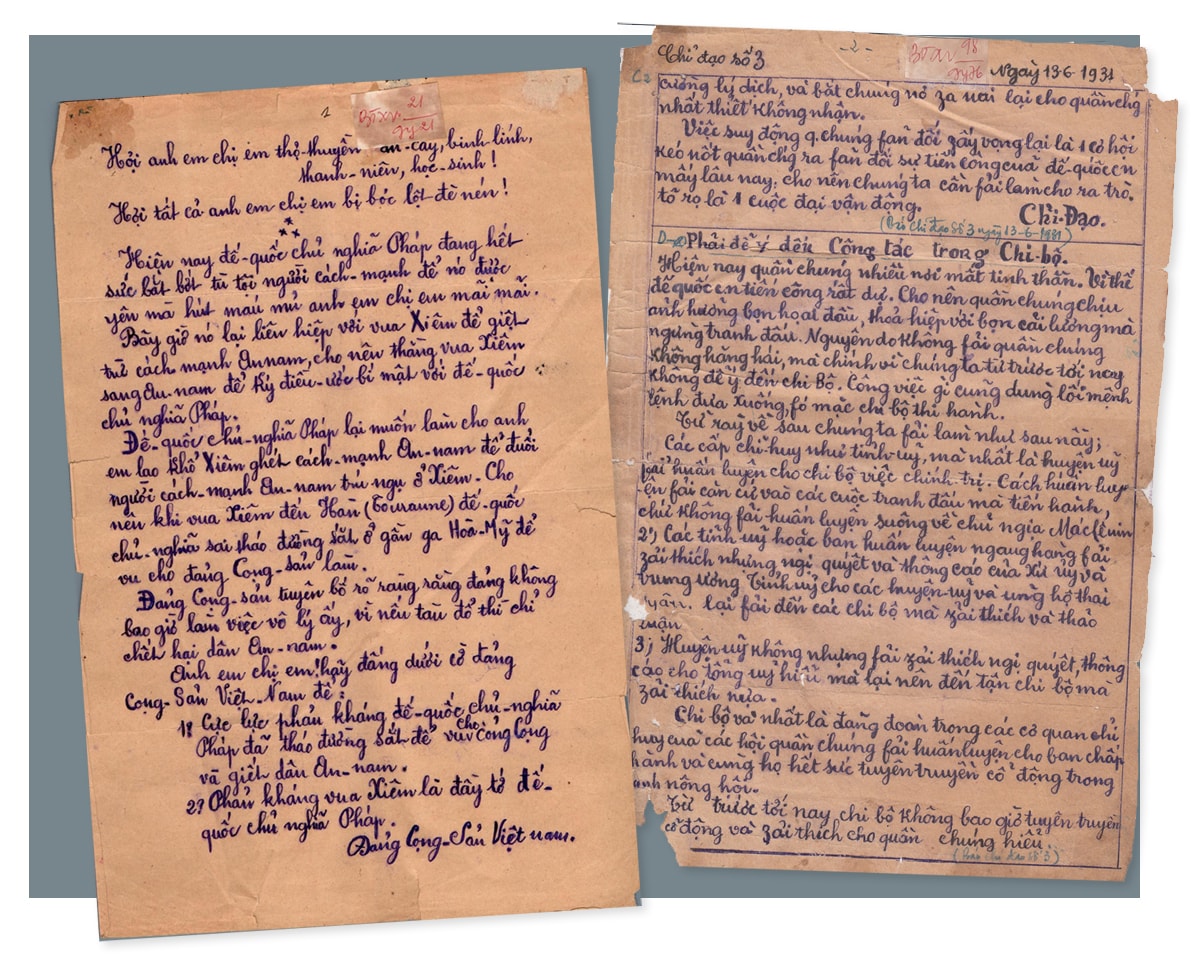 1
BTXVN 21
gy 21
Hỡi anh em chị em thợ-thuyền cày, binh-lính,
thanh-niên, học-sinh!
Hỡi tất cả anh em chị em bị bóc lột đè nén!
Hiện nay đế-quốc chủ nghĩa Pháp đang hết
sức bắt bớt tù tội người cách-mạnh để nó được
yên mà hút máu mủ anh em chị em mãi mãi.
Bây giờ nó lại liên hiệp với vua Xiêm để giệt
trừ cách mạnh Annam, cho nên thằng vua Xiêm
sang An-nam để ký điều-ước bí mật với đế-quốc
chủ nghĩa Pháp.
Đế-quốc chủ-nghĩa Pháp lại muốn làm cho anh
em lao khổ Xiêm ghét cách-mạnh An-nam để đuổi
người cách-mạnh An-nam trú ngụ ở Xiêm. Cho
nên khi vua Xiêm đến Hàn (Tourane) đế-quốc
chủ-nghĩa sai tháo đường sắt ở gần ga Hoà-Mỹ để
vu cho đảng Cong-sản làm.
Đảng Cong-sản tuyên bố rõ ràng rằng đảng không
bao giờ làm việc vô lý ấy, vì nếu tàu đổ thì chỉ
chết hại dân An-nam.
Anh em chị em! hãy đứng dưới cờ đảng
Cọng-Sản Việt-Nam để:
1? Cực lực phản kháng đế-quốc chủ-nghĩa
Pháp đã tháo đường sắt để vu cho Cộng
và giết dân An-nam.
2? Phản kháng vua Xiêm là đầy tớ đế-
quốc chủ nghĩa Pháp.
Đảng Cọng-Sản Việt nam.
Chỉ đạo số 3
-2-
98
gy 76
Ngày 13-6-1931
cường lý dịch, và bắt chúng nó za nai lại cho quần chg
nhất thiết không nhận.
Việc suy động q. chúng fản đối zấy vong lại là 1 cơ hội
kéo nốt quần chg ra fản đối sự tiến công của đế-quốc cn
mấy lâu nay; cho nên chúng ta cần fải làm cho ra trò.
tỏ rọ là 1 cuộc đại vận động.
Chỉ-Đạo.
(Báo chỉ đạo số 3 ngày 13-6-1931)
Phải để ý đến Công tác trong Chi-bộ.
Hiện nay quần chúng nhiều nơi mất tinh thần. Vì thế
đế quốc cn tiến công rất dự. Cho nên quần chúng chịu
ảnh hưởng bọn hoạt đầu, thoả hiệp với bọn cải lương mà
ngừng tranh đấu. Nguyên do không fải quần chúng
không hăng hái, mà chính vì chúng ta từ trước tới nay
không để ý đến chi Bộ. Công việc gì cung dung lối mệnh
lệnh đưa xuống, fó mặc chi bộ thi hành.
Từ rày về sau chúng ta fải làm như sau nầy;
Các cấp chỉ-huy như tỉnh-uỷ, mà nhất là huyện uỷ
fải huấn luyện cho chi bộ việc chính-trị. Cách huấn luy
ện fải căn cứ vào các cuộc tranh đấu mà tiến hành,
chứ không fải huấn luyện suông về chủ ngịa Máclênin
2') Các tỉnh uỷ hoặc ban huấn luyện ngang hang fải
zải thích nhưng ngị quyết và thông cáo của xứ ủy và
trung ương tỉnh uỷ cho các huyện-uỷ và
lại fải đến các chi bộ mà zải thích và thảo
luận.
3) Huyện uỷ không nhưng fải zải thích ngị quyết, thông
cáo cho tổng uỷ hiểu, mà lại nên đến tận chi bộ mà
zải thích nựa.
Chi bộ và nhất là đảng đoàn trong các cơ quan chỉ
huy của các hội quần chúng fải huấn luyện cho ban chấp
hành và cùng họ hết sức tuyên truyền cổ động trong
nông hội.
Từ trước tới nay chi bộ không bao giờ tuyên truyền
cổ động và zải thích cho quần chúng hiểu.
(Báo chỉ đạo số 3)